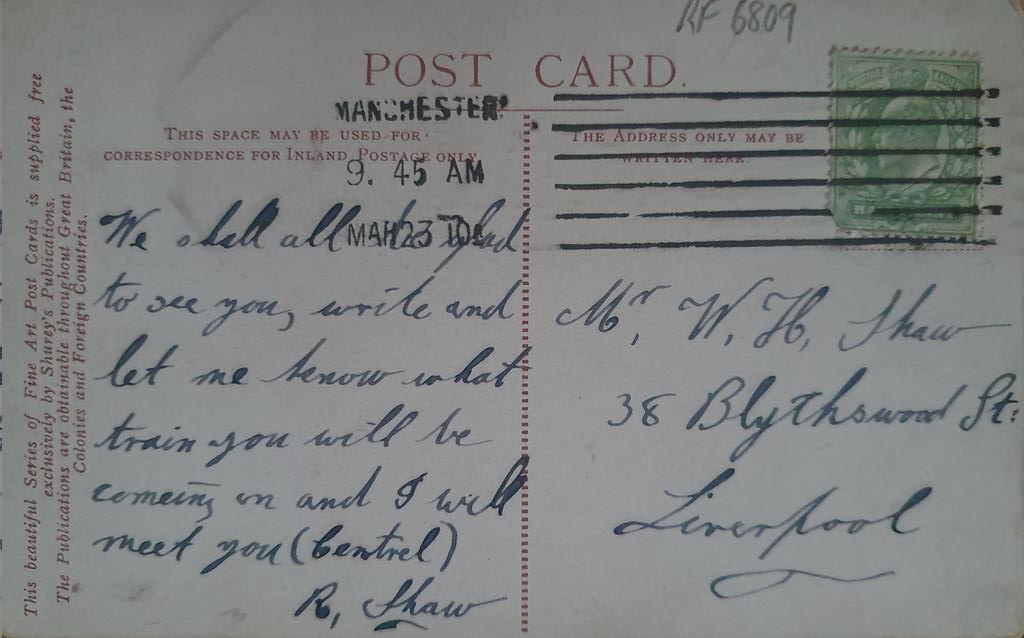 RF 6809
POST CARD.
MANCHESTER
9. 45 AM
MAR 23 10
THIS SPACE MAY BE USED FOR
CORRESPONDENCE FOR INLAND POSTAGE ONLY.
THE ADDRESS ONLY MAY BE
WRITTEN HERE.
This beautiful Series of Fine Art Post Cards is supplied free
exclusively by Shurey's Publications.
The Publications are obtainable throughout Great Britain, the
Colonies and Foreign Countries.
We shall all be glad
to see you, write and
let me know what
train you will be
comeing on and I will
meet you (Centrel)
R, Shaw
Mr, W, H, Shaw
38 Blythswood St:
Liverpool